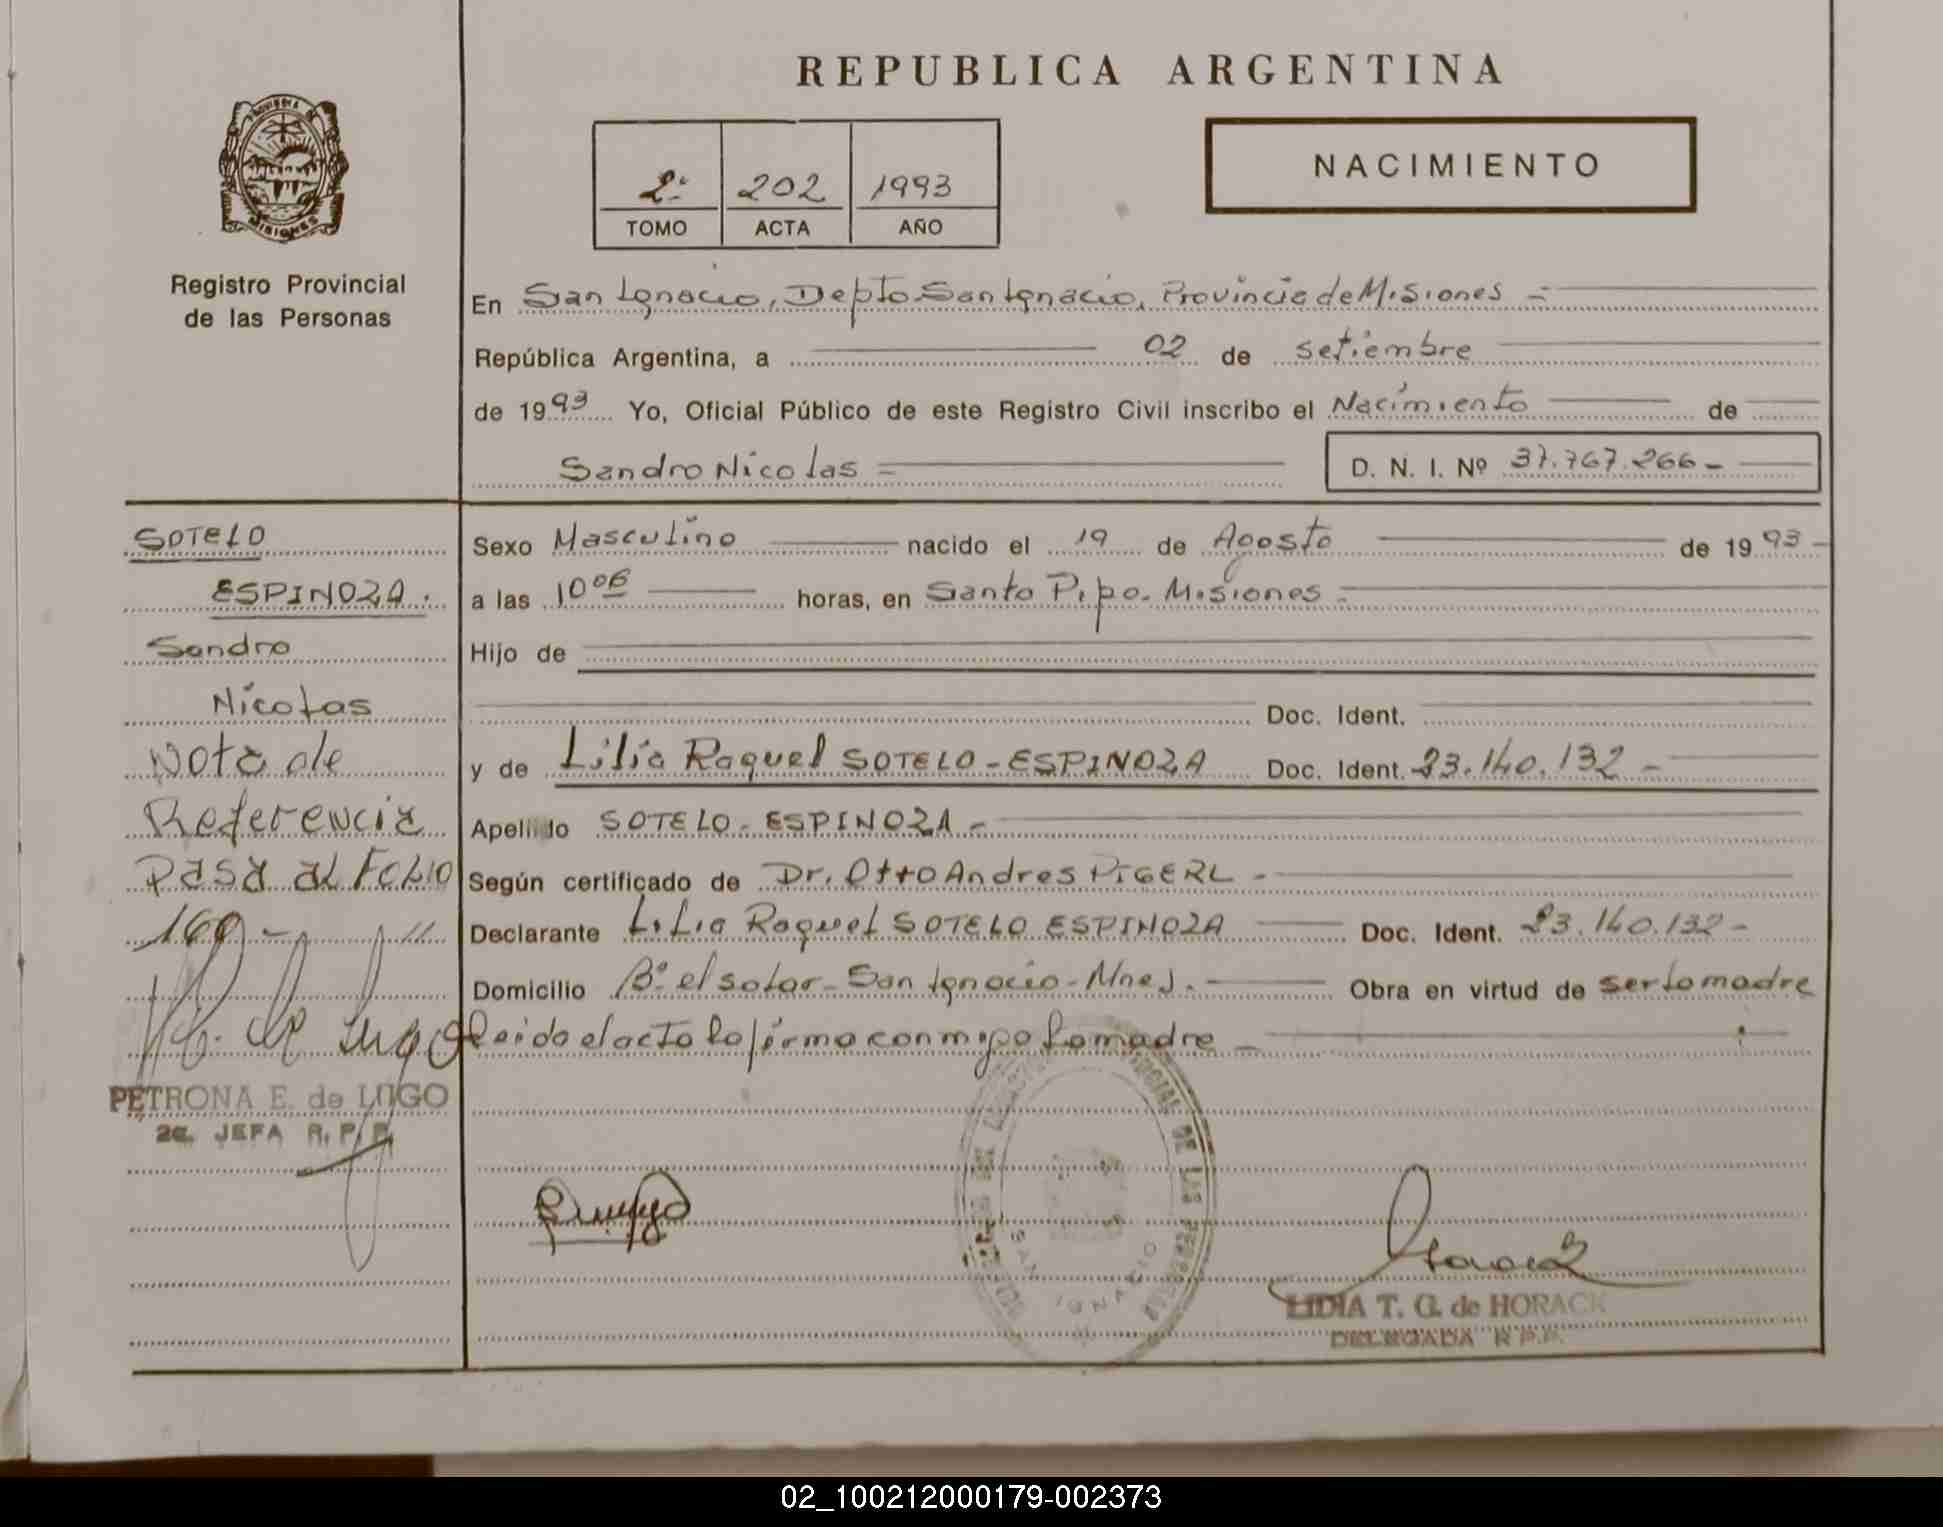 REPUBLICA ARGENTINA
PROVINCIA DE MISIONES
2º 202 1993
TOMO ACTA AÑO
NACIMIENTO
Registro Provincial
de las Personas
En San Ignacio, Depto San Ignacio, Provincia de Misiones -
República Argentina, a 02 de setiembre
de 1993 Yo, Oficial Público de este Registro Civil inscribo el Nacimiento de
Sandro Nicolas = D. N. I. Nº 37.767.266-
SOTELO
ESPINOZA.
Sandro
Nicolas
Nota de
Referencia
Pasa al FOLIO
160-
PETRONA E. de LUGO
2a. JEFA R. P. P.
Sexo Masculino nacido el 19 de Agosto de 1993-
a las 10 06 horas, en Santo Pipo. Misiones -
Hijo de
Doc. Ident.
y de Lilia Raquel SOTELO-ESPINOZA Doc. Ident. 23.140.132-
Apellido SOTELO-ESPINOZA-
Según certificado de Dr. Otto Andres PIGERL-
Declarante Lilia Raquel SOTELO ESPINOZA Doc. Ident. 23.140.132-
Domicilio Bº el solar- San Ignacio-Mnes. Obra en virtud de ser la madre
leida el acta la firma conmigo la madre-
SAN IGNACIO
LIDIA T. G. de HORACK
DELEGADA R.P.P.
02_100212000179-002373